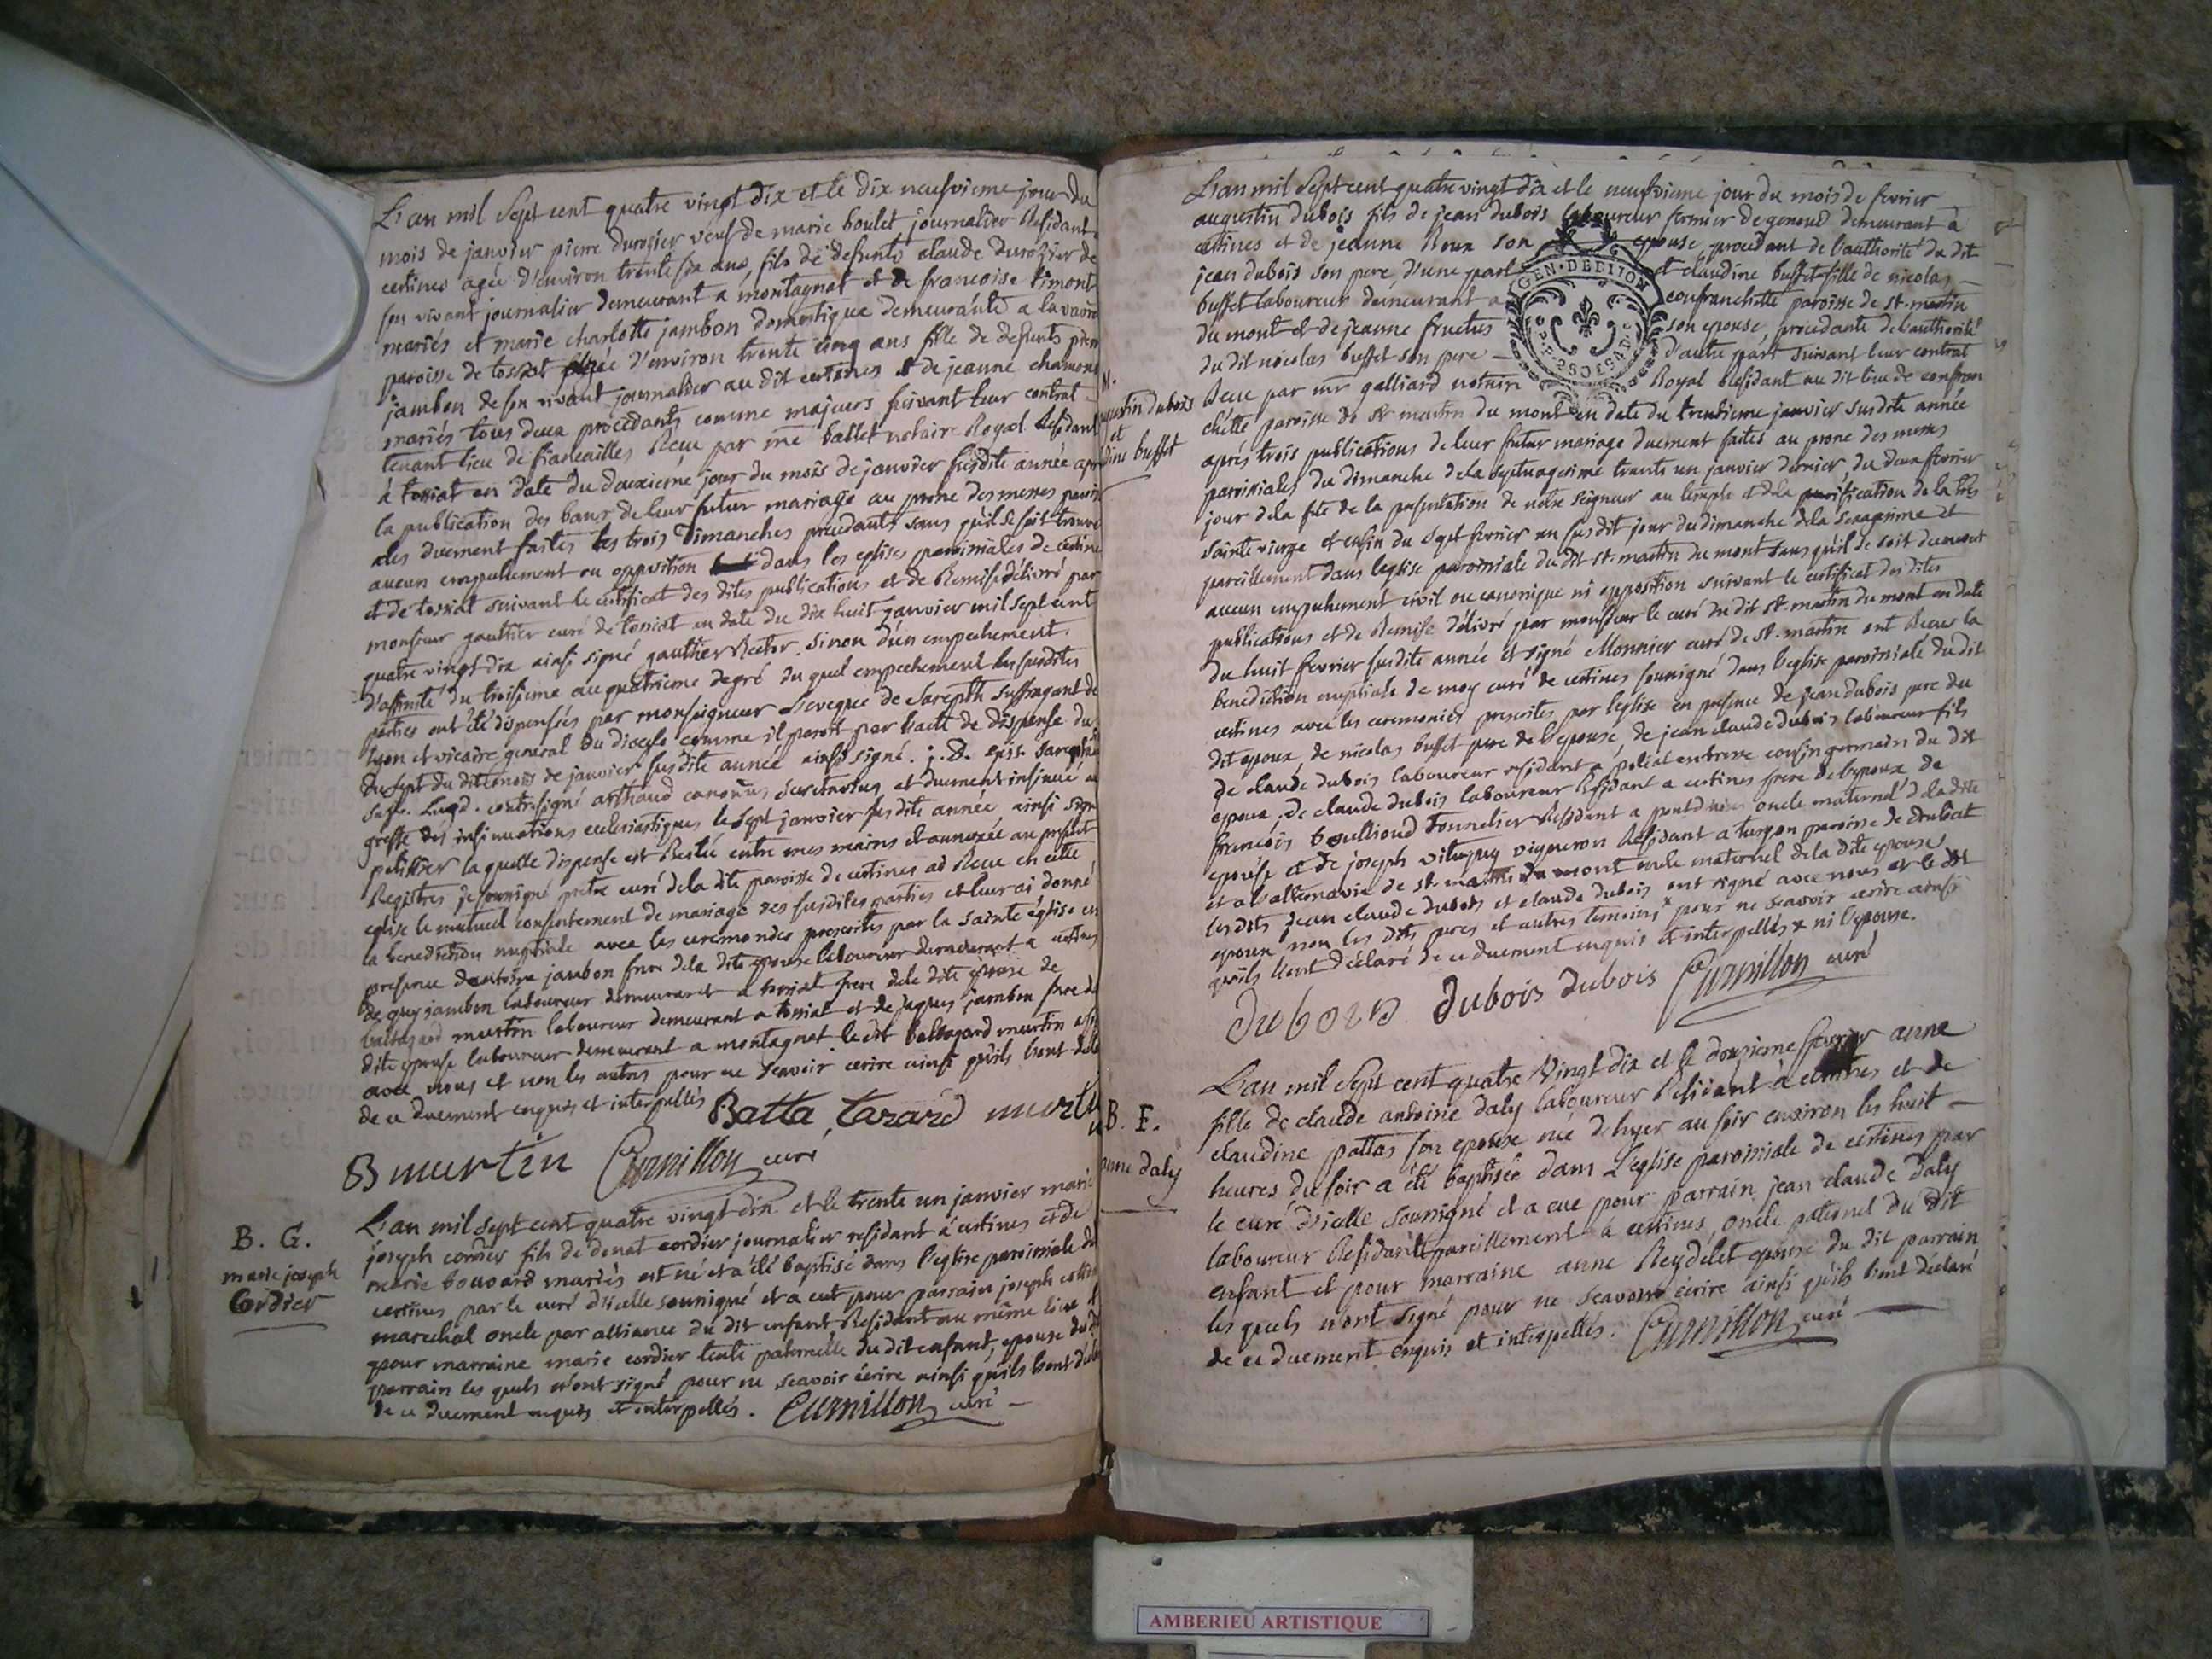 L'an mil Sept cent quatre vingt dix et le dix neufvieme jour du
mois de janvier pierre durozier veuf de marie boulet journalier Residant
certines agée d'environ trente six ans, fils de defunts claude durozier de
son vivant journalier demeurant a montagnat et de francoise timont
mariés et marie charlotte jambon domestique demeurante a lavaure
paroisse de tossiat agée d'environ trente cinq ans fille de defunts pierre
jambon de son vivant journalier au dit certines et de jeanne chamont
mariés tous deux procedants comme majeurs suivant leur contrat
tenant lieu de fiancailles Recu par me ballet notaire Royal Residant
à tossiat en date du douxieme jour du mois de janvier susdite année apres
la publication des bans de leur futur mariage au prone des messes parois
ales duement faites les trois Dimanches precedants sans qu'il se soit trouvé
aucun empechement ou opposition dans les eglises paroissiales de certine
et de tossiat suivant le certificat des dites publications et de Remise delivré par
monsieur gauthier curé de tossiat en date du dix huit janvier mil sept cent
quatre vingt dix ainsi signé gauthier Rector. Sinon d'un empechement
d'affinité du troisieme au quatrieme degré du quel empechement les susdites
parties ont été dispensées par monseigneur L'eveque de Sarepth Suffragant de
Lyon et vicaire general du diocese comme il paroit par l'acte de dispense du
du sept du dit mois de janvier susdite année ainsi signé. j. D. epis. Sarepth
Suffr. Lugd. contresigné arthaud canonus, Secretarius, et duement insinué au
greffe des insinuations ecclesiastiques le sept janvier susdite année ainsi signé
petitier la quelle dispense est Restée entre mes mains et annexée au present
Registres je soussigné pretre curé de la dite paroisse de certines ai Recu en cette
eglise le mutuel consentement de mariage des susdites parties et leur ai donné
la benediction nuptiale avec les ceremonies prescrites par la sainte église en
presence d'antoine jambon frere de la dite epouse laboureur demeurant a certines
de guy jambon laboureur demeurant a tossiat frere de la dite epouse de
baltazard murtin laboureur demeurant a tossiat et de jaques jambon frere de
dite epouse laboureur demeurant a montagnat le dit baltazard murtin a si
avec nous et non les autres pour ne scavoir ecrire ainsi qu'ils l'ont
de ce duement enquis et interpellés Batta, tazard murti
B murtin Curnillon curé
B. G.
marie joseph
Cordier
L'an mil sept cent quatre vingt dix et le trente un janvier marie
joseph cordier fils de donat cordier journalier residant à certines et de
marie bouvard mariés est né et a été baptisé dans l'eglise paroissiale de
certines par le curé d'icelle soussigné et a eut pour parrain joseph
marechal oncle par alliance du dit enfant Residant au même lieu et
pour marraine marie cordier tante paternelle du dit enfant, epouse du dit
parrain les quels n'ont signé pour ne scavoir écrire ainsi qu'ils l'ont
de ce duement enquis et interpellés. Curnillon curé
L'an mil Sept cent quatre vingt dix et le neufvieme jour du mois de fevrier
augustin dubois fils de jean dubois laboureur fermier de genoud demeurant à
certines et de jeanne Roux son epouse, procedant de l'authorité du dit
jean dubois son pere d'une part et claudine buffet fille de nicolas
buffet laboureur demeurant a confranchette paroisse de st. martin
du mont et de jeanne fructus son epouse, procedante de l'authorité
du dit nicolas buffet son pere d'autre part suivant leur contrat
Recu par mr galliard notaire Royal Residant au dit lieu de confran
chette paroisse de st martin du mont en date du trentieme janvier susdite année
après trois publications de leur futur mariage duement faites au prone des messes
paroissiales du dimanche de la septuagesime trente un janvier dernier, du deux fevrier
jour de la fete de la presentation de notre seigneur au temple et de la purification de la tres
sainte vierge et enfin du sept fevrier au susdit jour du dimanche de la sexagesime et
pareillement dans l'eglise paroissiale du dit st. martin du mont sans qu'il se soit decouvert
aucun empechement civil ou canonique ni opposition suivant le certificat des dites
publications et de Remise délivré par monsieur le curé du dit st. martin du mont en date
du huit fevrier susdite année et signé Monnier curé de st. martin ont Recus la
benediction nuptiale de moy curé de certines soussigné dans l'eglise paroissiale du dit
certines avec les ceremonies prescrites par l'eglise en presence de jean dubois pere du
dit epoux, de nicolas buffet pere de l'epouse, de jean claude dubois laboureur fils
de claude dubois laboureur residant a poliat en bresse cousin germain du dit
epoux, de claude dubois laboureur Residant a certines frere de l'epoux de
francois boullioud tonnelier Residant a pontdain oncle maternel de la dite
epouse et de joseph vitupuy vigneron Residant a turgon paroisse de druliat
et a l'alternative de st. martin du mont oncle maternel de la dite epouse
les dits jean claude dubois et claude dubois ont signé avec nous et le dit
epoux non les dits peres et autres temoins x pour ne scavoir ecrire ainsi
qu'ils l'ont déclaré de ce duement enquis et interpellés x ni l'epouse.
dubois dubois dubois Curnillon curé
M.
gustin dubois
et
dine buffet
B. F.
anne daly
L'an mil Sept cent quatre Vingt dix et le douzieme fevrier anne
fille de claude antoine daly laboureur Residant à certines et de
claudine pattas son epouse née d'hyer au soir environ les huit
heures du soir a été baptisée dans L'eglise paroissiale de certines par
le curé d'icelle soussigné et a eue pour parrain jean claude daly
laboureur Residant pareillement à certines, oncle paternel du dit
enfant et pour marraine anne Reydelet epouse du dit parrain
les quels n'ont signé pour ne scavoir écrire ainsi qu'ils l'ont déclaré
de ce duement enquis et interpellés. Curnillon curé
GEN·DE DIJON
AMBERIEU ARTISTIQUE